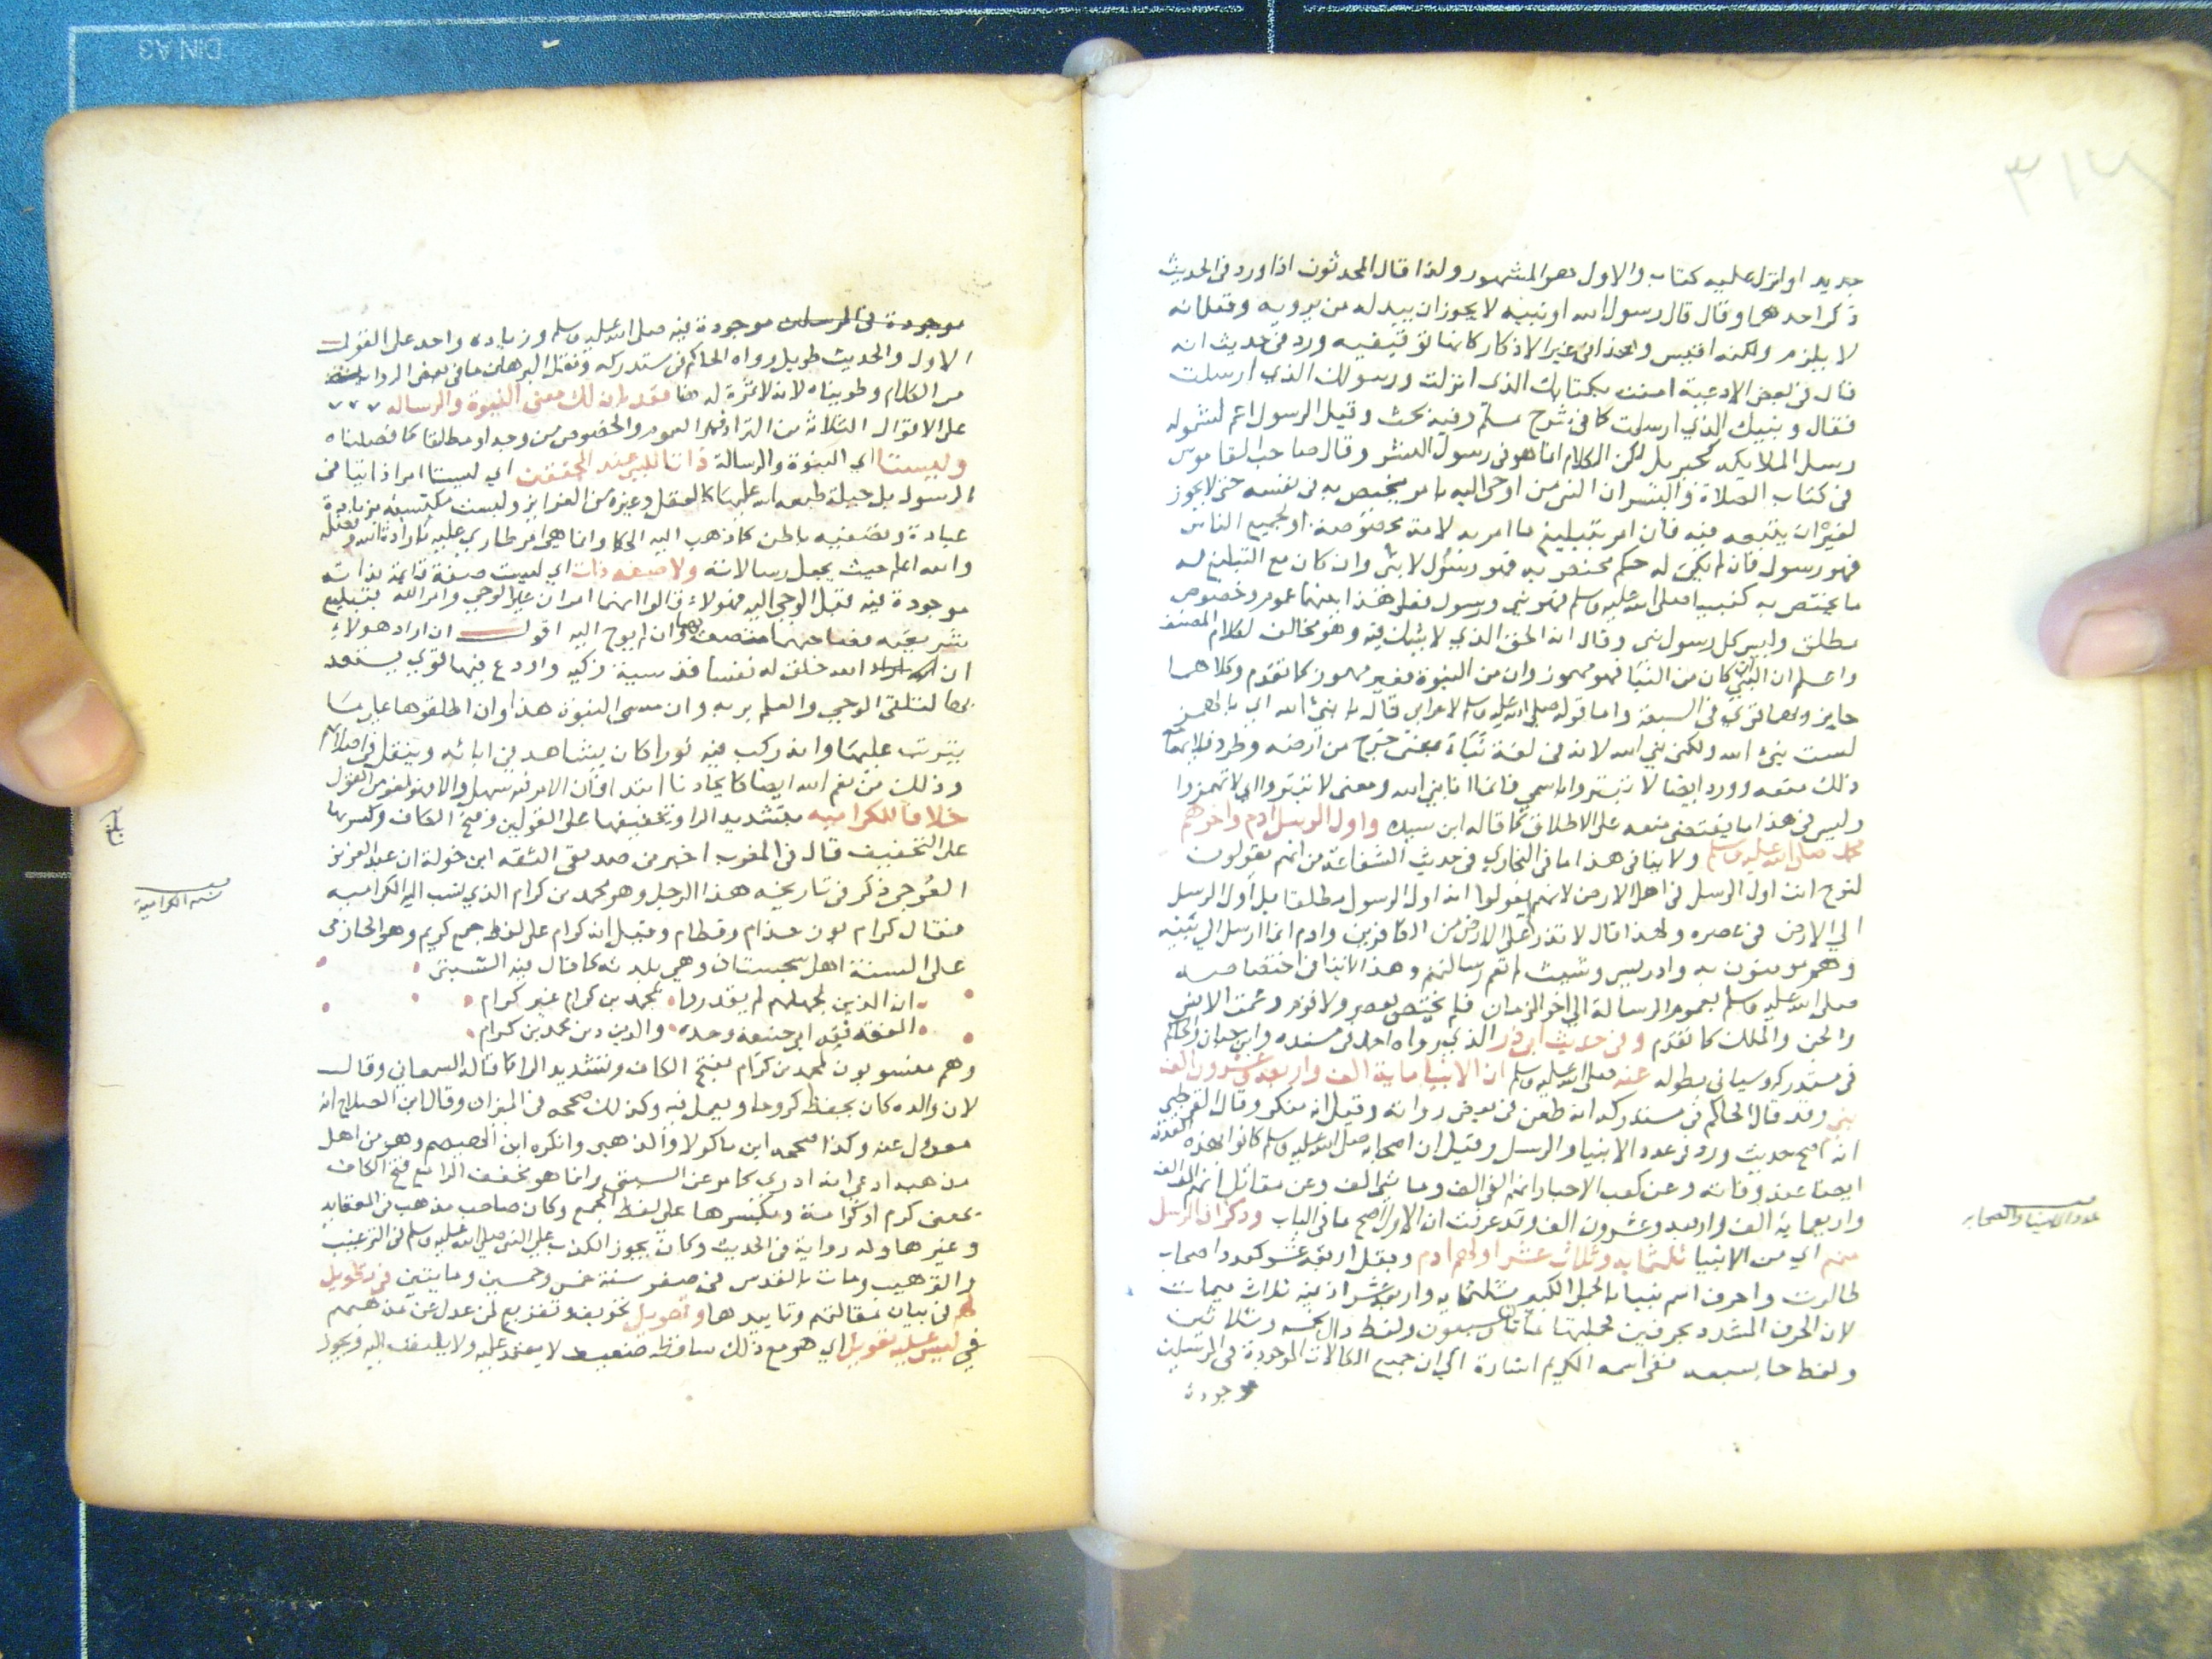 ٣١٧
جديد او انزل عليه كتاب والاول هو المشهور ولذا قال المحدثون اذا ورد في الحديث
ذكر احدهما وقال قال رسول الله او نبيه لا يجوز ان يبدله من يرويه وقيل انه
لا يلزم ولكنه اقيس وهذا في غير الاذكار كانها توقيفيه ورد في حديث انه
قال في بعض الادعية امنت بكتابك الذي انزلت ورسولك الذي ارسلت
فقال ونبيك الذي ارسلت كما في شرح مسلم وفيه بحث وقيل الرسول اعم لشموله
رسل الملايكه كجبريل لكن الكلام انما هو في رسول البشر وقال صاحب القاموس
في كتاب الصلاة والبشر ان النبي من اوحى اليه بامر يختص به في نفسه حتى لا يجوز
لغيره ان يتبعه فيه فان امر بتبليغ ما امر به لامة مخصوصة او لجميع الناس
فهو رسول فان لم يكن له حكم مختص به فهو رسول لا نبي وان كان مع التبليغ له
ما يختص به كنبينا صلى الله عليه وسلم فهو نبي ورسول فعلى هذا بينهما عموم وخصوص
مطلق وليس كل رسول نبي وقال انه الحق الذي لا شك فيه وهو مخالف لكلام المصنف
واعلم ان النبي ان كان من النبا فهو مهموز وان من النبوة فغير مهموز كما تقدم وكلاهما
جايز وبهما قري في السبعة واما قوله صلى الله عليه وسلم لاعرابي قال له يا نبيء الله اي بالهمز
لست بنبيء الله ولكن نبي الله لانه في لغة نبا بمعنى خرج من ارضه وطرد فلا
ذلك منعه وورد ايضا لا تنبروا باسمي فانما انا نبي الله ومعنى لا تنبروا اي لا تهمزوا
وليس في هذا ما يقتضي منعه على الاطلاق كما قاله ابن سيده واول الرسل ادم واخرهم
محمد صلى الله عليه وسلم ولا ينافي هذا ما في البخاري في حديث الشفاعة من انهم يقولون
لنوح انت اول الرسل في اهل الارض لانهم لم يقولوا انه اول الرسول مطلقا بل اول الرسل
الي الارض في عصره ولهذا قال لا تذر على الارض من الكافرين وادم انما ارسل الي بنيه
وهم مومنون به وادريس وشيث لم تعم رسالتهم وهذا لا ينافي اختصاصه
صلى الله عليه وسلم بعموم الرسالة الي اخر الزمان فلم يختص بعصر ولا قوم وعمت الانس
والجن والملك كما تقدم وفي حديث ابي ذر الذي رواه احمد في مسنده وابن حبان والحاكم
في مستدركه وسياتي بطوله عنه صلى الله عليه وسلم ان الانبيا ماية الف واربعة وعشرون الف
نبي وقد قال الحاكم في مستدركه انه طعن في بعض رواته وقيل انه منكر وقال القرطبي
انه اصح حديث ورد في عدد الانبيا والرسل وقيل ان اصحابه صلى الله عليه وسلم كانوا بهذه العدة
ايضا عند وفاته وعن كعب الاحبار انهم الفي الف وما يتي الف وعن مقاتل انهم الف الف
واربعماية الف واربعة وعشرون الف وقد عرفت ان الاول اصح ما في الباب وذكر ان الرسل
منهم اي من الانبيا ثلثماية وثلاث عشر اولهم ادم وبقل اربعة عشر كعدد اصحاب
طالوت واحرف اسم نبينا بالجمل الكبير ثلثماية واربعة عشر اذ فيه ثلاث ميمات
لان الحرف المشدد بحرفين لجملتها مائتان وسبعون ولفظ دال بخمسة وثلاثين
ولفظ حا بسبعه ففي اسمه الكريم اشارة الي ان جميع الكمالات الموجودة في المرسلين
موجودة
عدد الانبيا والصحابه
موجودة في المرسلين موجودة فيه صلى الله عليه وسلم وزياده واحد على القول
الاول والحديث طويل رواه الحاكم في مستدركه ونقل البرهان ما في بعض الروا
من الكلام وطويناه لانه لا ثمرة له هنا فقد بان لك معنى النبوة والرساله
على الاقوال الثلاثة من الترادف او العموم والخصوص من وجه او مطلقا كما فصلناه
وليستا اي النبوة والرسالة ذاتا للنبي عند المحققين اي ليستا امرا ذاتيا في
الرسول بل جبلة طبعه الله عليها كالعقل وغيره من الغرايز وليست مكتسبة بزيادة
عبادة وتصفيه باطن كما ذهب اليه الحكما وانما هي امر طاري عليه بارادة الله وفعله
والله اعلم حيث يجعل رسالاته ولا صفه ذات اي ليست صفة قائمة بذاته
موجودة فيه قبل الوحي اليه فهولاء قالوا انهما امران غير الوحي وامر الله بتبليغ
شريعته فصاحبهما متصف بهما وان لم يوح اليه اقول ان اراد هولاء
ان الله خلق له نفسا قدسية زكيه واودع فيها قوي يستعد
بها لتلقي الوحي والعلم بربه وان سمى النبوة هذا وان اطلقوها على ما
يترتب عليها وانه ركب فيه نورا كان يشاهد في ابائه وينقل في اصلابهم
وذلك من نعم الله ايضا كايجادنا ابتدا فان الامر فيه سهل والا فهو لغو من القول
خلافا للكراميه بتشديد الرا وتخفيفها على القولين وفتح الكاف وكسرها
على التخفيف قال في المغرب اخبرني صديقي الثقه ابن خولة ان عبد العزيز
العوجري ذكر في تاريخه هذا الرجل وهو محمد بن كرام الذي تنسب اليه الكراميه
فقال كرام بوزن حذام وقطام وقيل انه كرام على لفظ جمع كريم وهو الجاري
على السنة اهل سجستان وهي بلدته كما قال فيه البستي
ان الذين لجهلهم لم يقتدوا بمحمد بن كرام غير كرام
الفقه فقه ابي حنيفه وحده والدين دين محمد بن كرام
وهم منسوبون لمحمد بن كرام بفتح الكاف وتشديد الرا كما قاله السمعاني وقال
لان والده كان يحفظ كروما ويعمل فيه وكذلك صححه في الميزان وقال ابن الصلاح انه
معدول عنه وكذا صححه ابن ماكولا والذهبي وانكره ابن الهيصم وهو من اهل
مذهبه ادعى انه ادرى كما مر عن البستي وانما هو مخفف الرا مع فتح الكاف
بمعنى كرم او كرامة وبكسرها على لفظ الجمع وكان صاحب مذهب في العقايد
وغيرها وله رواية في الحديث وكان يجوز الكذب على النبي صلى الله عليه وسلم في الترغيب
والترهيب ومات بالقدس في صفر سنة خمس وخمسين ومايتين في تطويل
لهم في بيان مقالتهم وتاييدها وتهويل تخويف وتفزيع لمن عدل عن مذهبهم
في ليس عليه تعويل اي هو مع ذلك ساقط ضعيف لا يعتمد عليه ولا يلتفت اليه ويجوز
بلغ
نسبه الكرامية